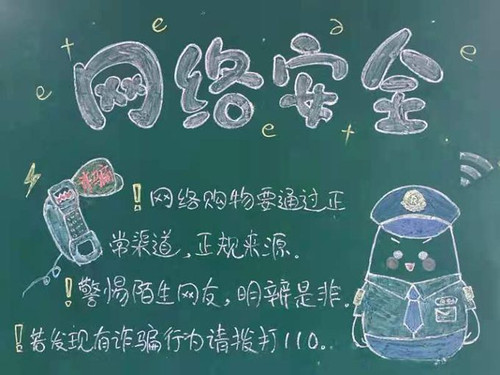 网络安全
诈骗
！网络购物要通过正
常渠道，正规来源。
！警惕陌生网友，明辨是非。
！若发现有诈骗行为请拨打110。